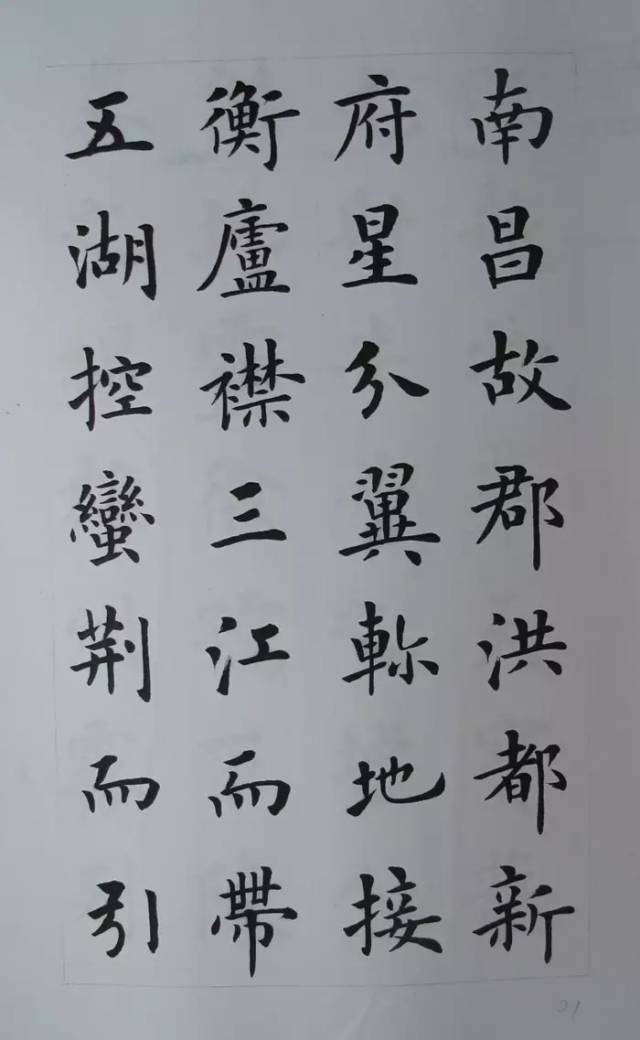 南昌故郡洪都新
府星分翼軫地接
衡廬襟三江而帶
五湖控蠻荆而引
01